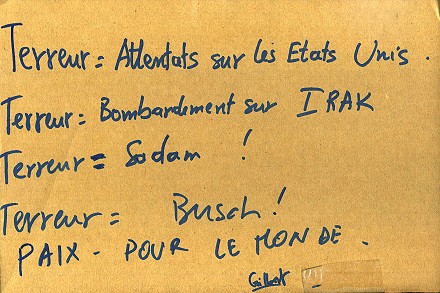 Terreur = Attentats sur les Etats Unis.
Terreur = Bombardement sur IRAK
Terreur = Sodam !
Terreur = Busch !
PAIX - POUR LE MONDE.